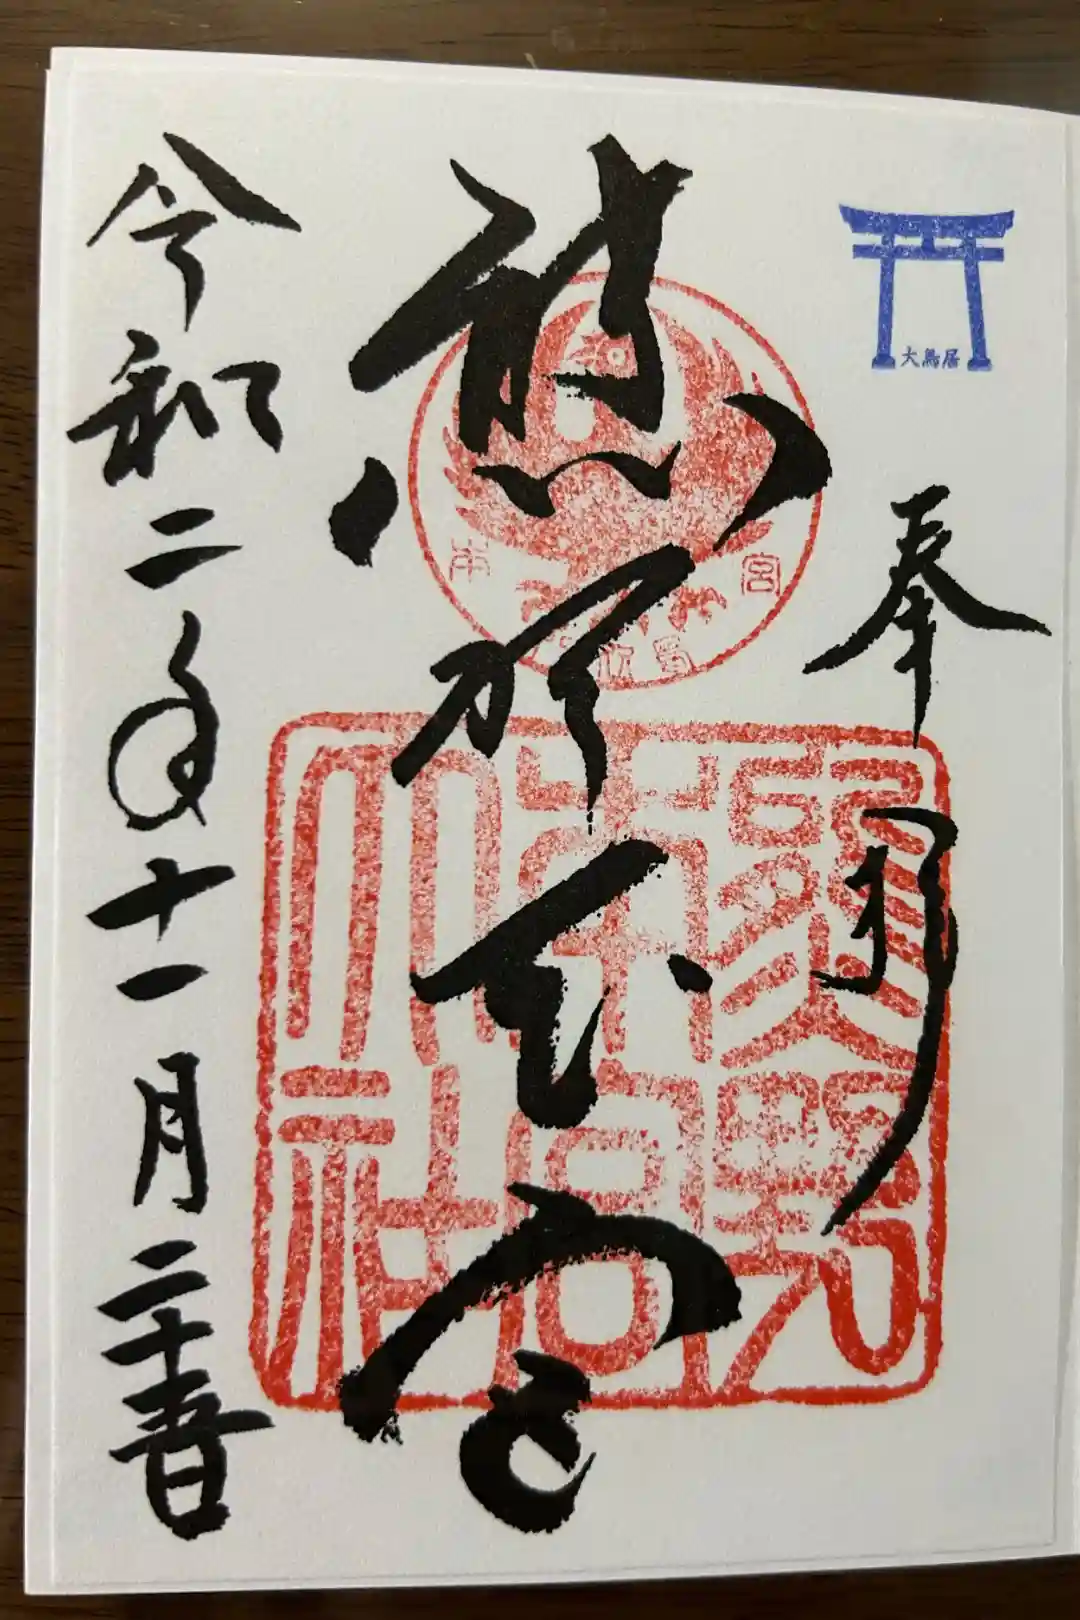 大鳥居
奉拝
熊野本宮
令和二年十一月二十五日
熊野
本宮
大社